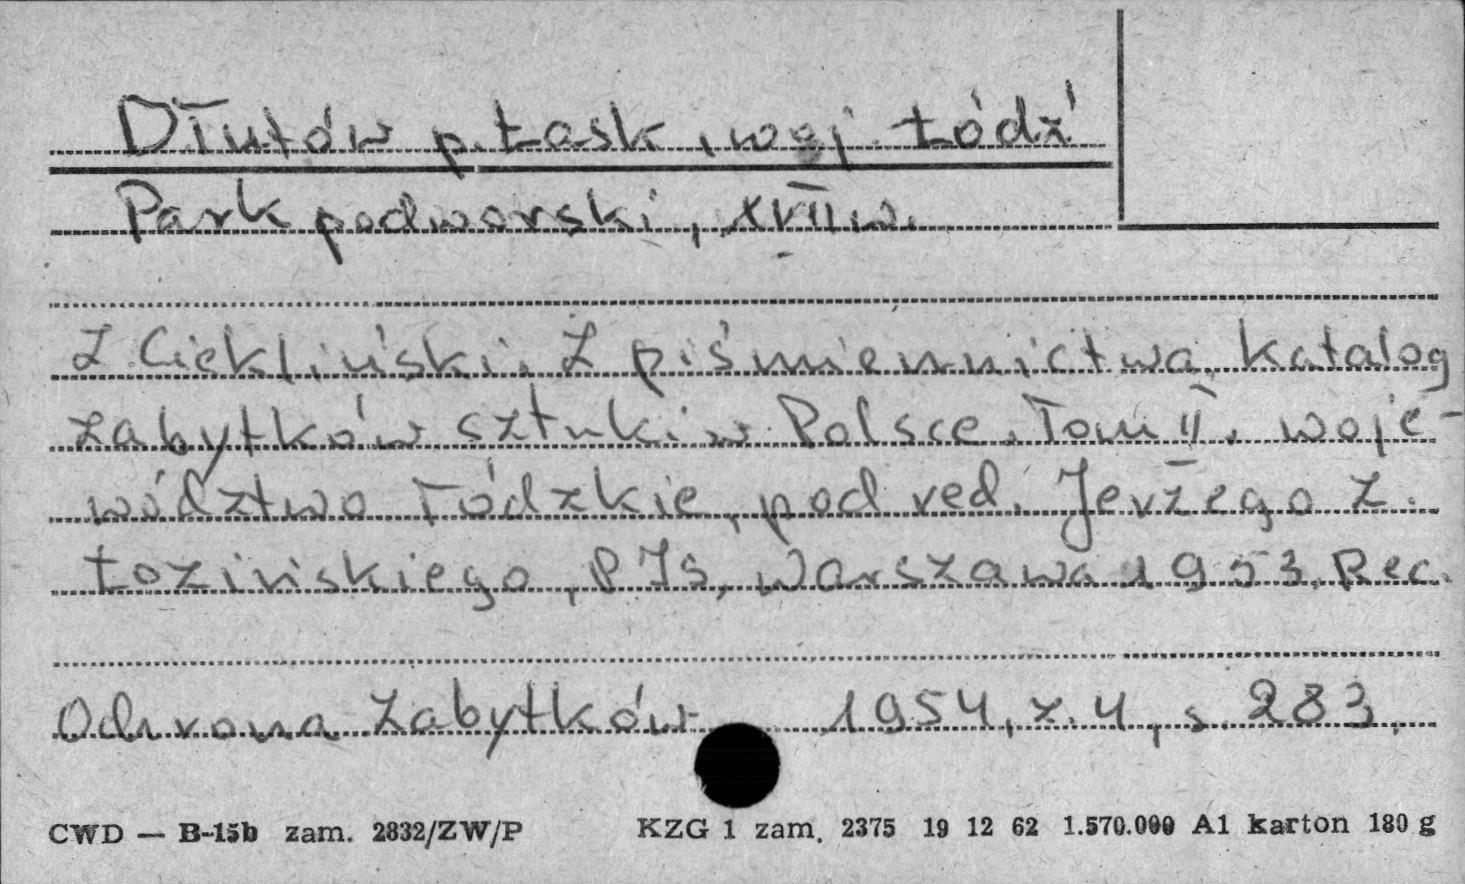 Dłutów p. Łask, woj. Łódź
Park podworski, XVII w.
Z. Ciekliński, Z piśmiennictwa, katalog
zabytków sztuki w Polsce. Tom II. woje-
wództwo łódzkie, pod red. Jerzego Z.
Łozińskiego, PIS, Warszawa 1953. Rec.
Ochrona Zabytków 1954, z. 4, s. 283,
CWD — B-15b zam. 2832/ZW/P KZG 1 zam. 2375 19 12 62 1.570.000 A1 karton 180 g